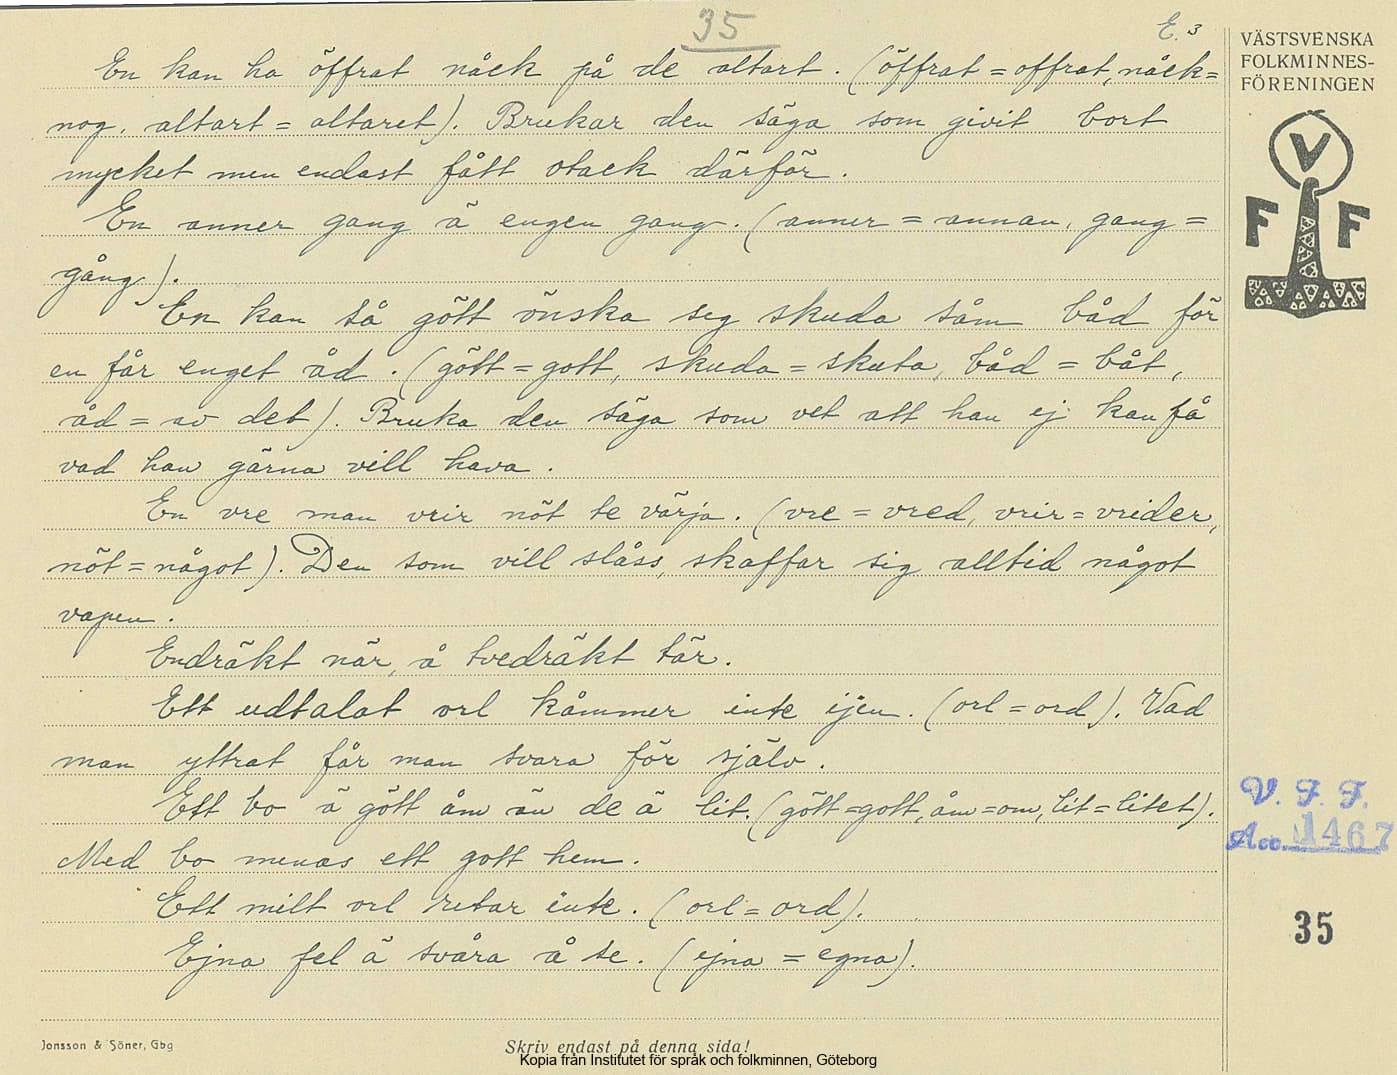 35
E. 3
En kan ha öffrat nåck på de altart. (öffrat = offrat, nåck =
nog. altart = altaret). Brukar den säga som givit bort
mycket men endast fått otack därför.
En anner gang ä engen gang. (anner = annan, gang =
gång).
En kan så gött önska seg skuda såm båd för
en får enget åd. (gött = gott, skuda = skuta, båd = båt,
åd = av det). Bruka den säga som vet att han ej kan få
vad han gärna vill hava.
En vre man vrir nöt te värja. (vre = vred, vrir = vrider,
nöt = något). Den som vill slåss, skaffar sig alltid något
vapen.
Endräkt när, å tvedräkt tär.
Ett udtalat orl kåmmer inte ijen. (orl = ord). Vad
man yttrat får man svara för själv.
Ett bo ä gött åm än de ä lit. (gött = gott, åm = om, lit = litet).
Med bo menas ett gott hem.
Ett milt orl retar inte. (orl = ord).
Ejna fel ä svåra å se. (ejna = egna).
VÄSTSVENSKA
FOLKMINNES-
FÖRENINGEN
V
F F
V. F. F.
Acc. 1467
35
Jonsson & Söner, Gbg
Skriv endast på denna sida!
Kopia från Institutet för språk och folkminnen, Göteborg